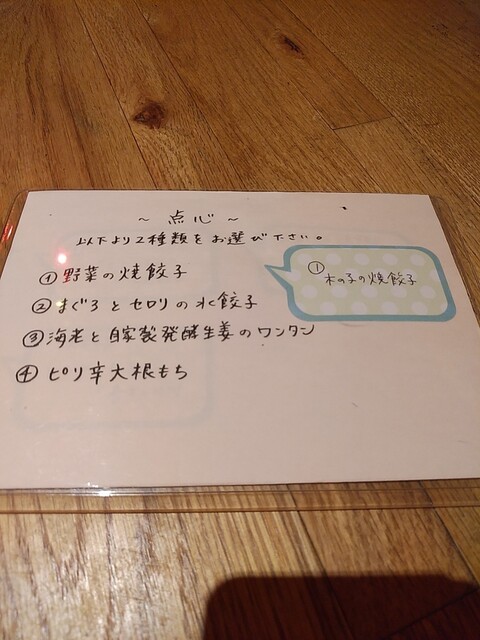 ～点心～
以下より2種類をお選び下さい。
①野菜の焼餃子
①
木の子の焼餃子
②まぐろとセロリの水餃子
③海老と自家製発酵生姜のワンタン
④ピリ辛大根もち